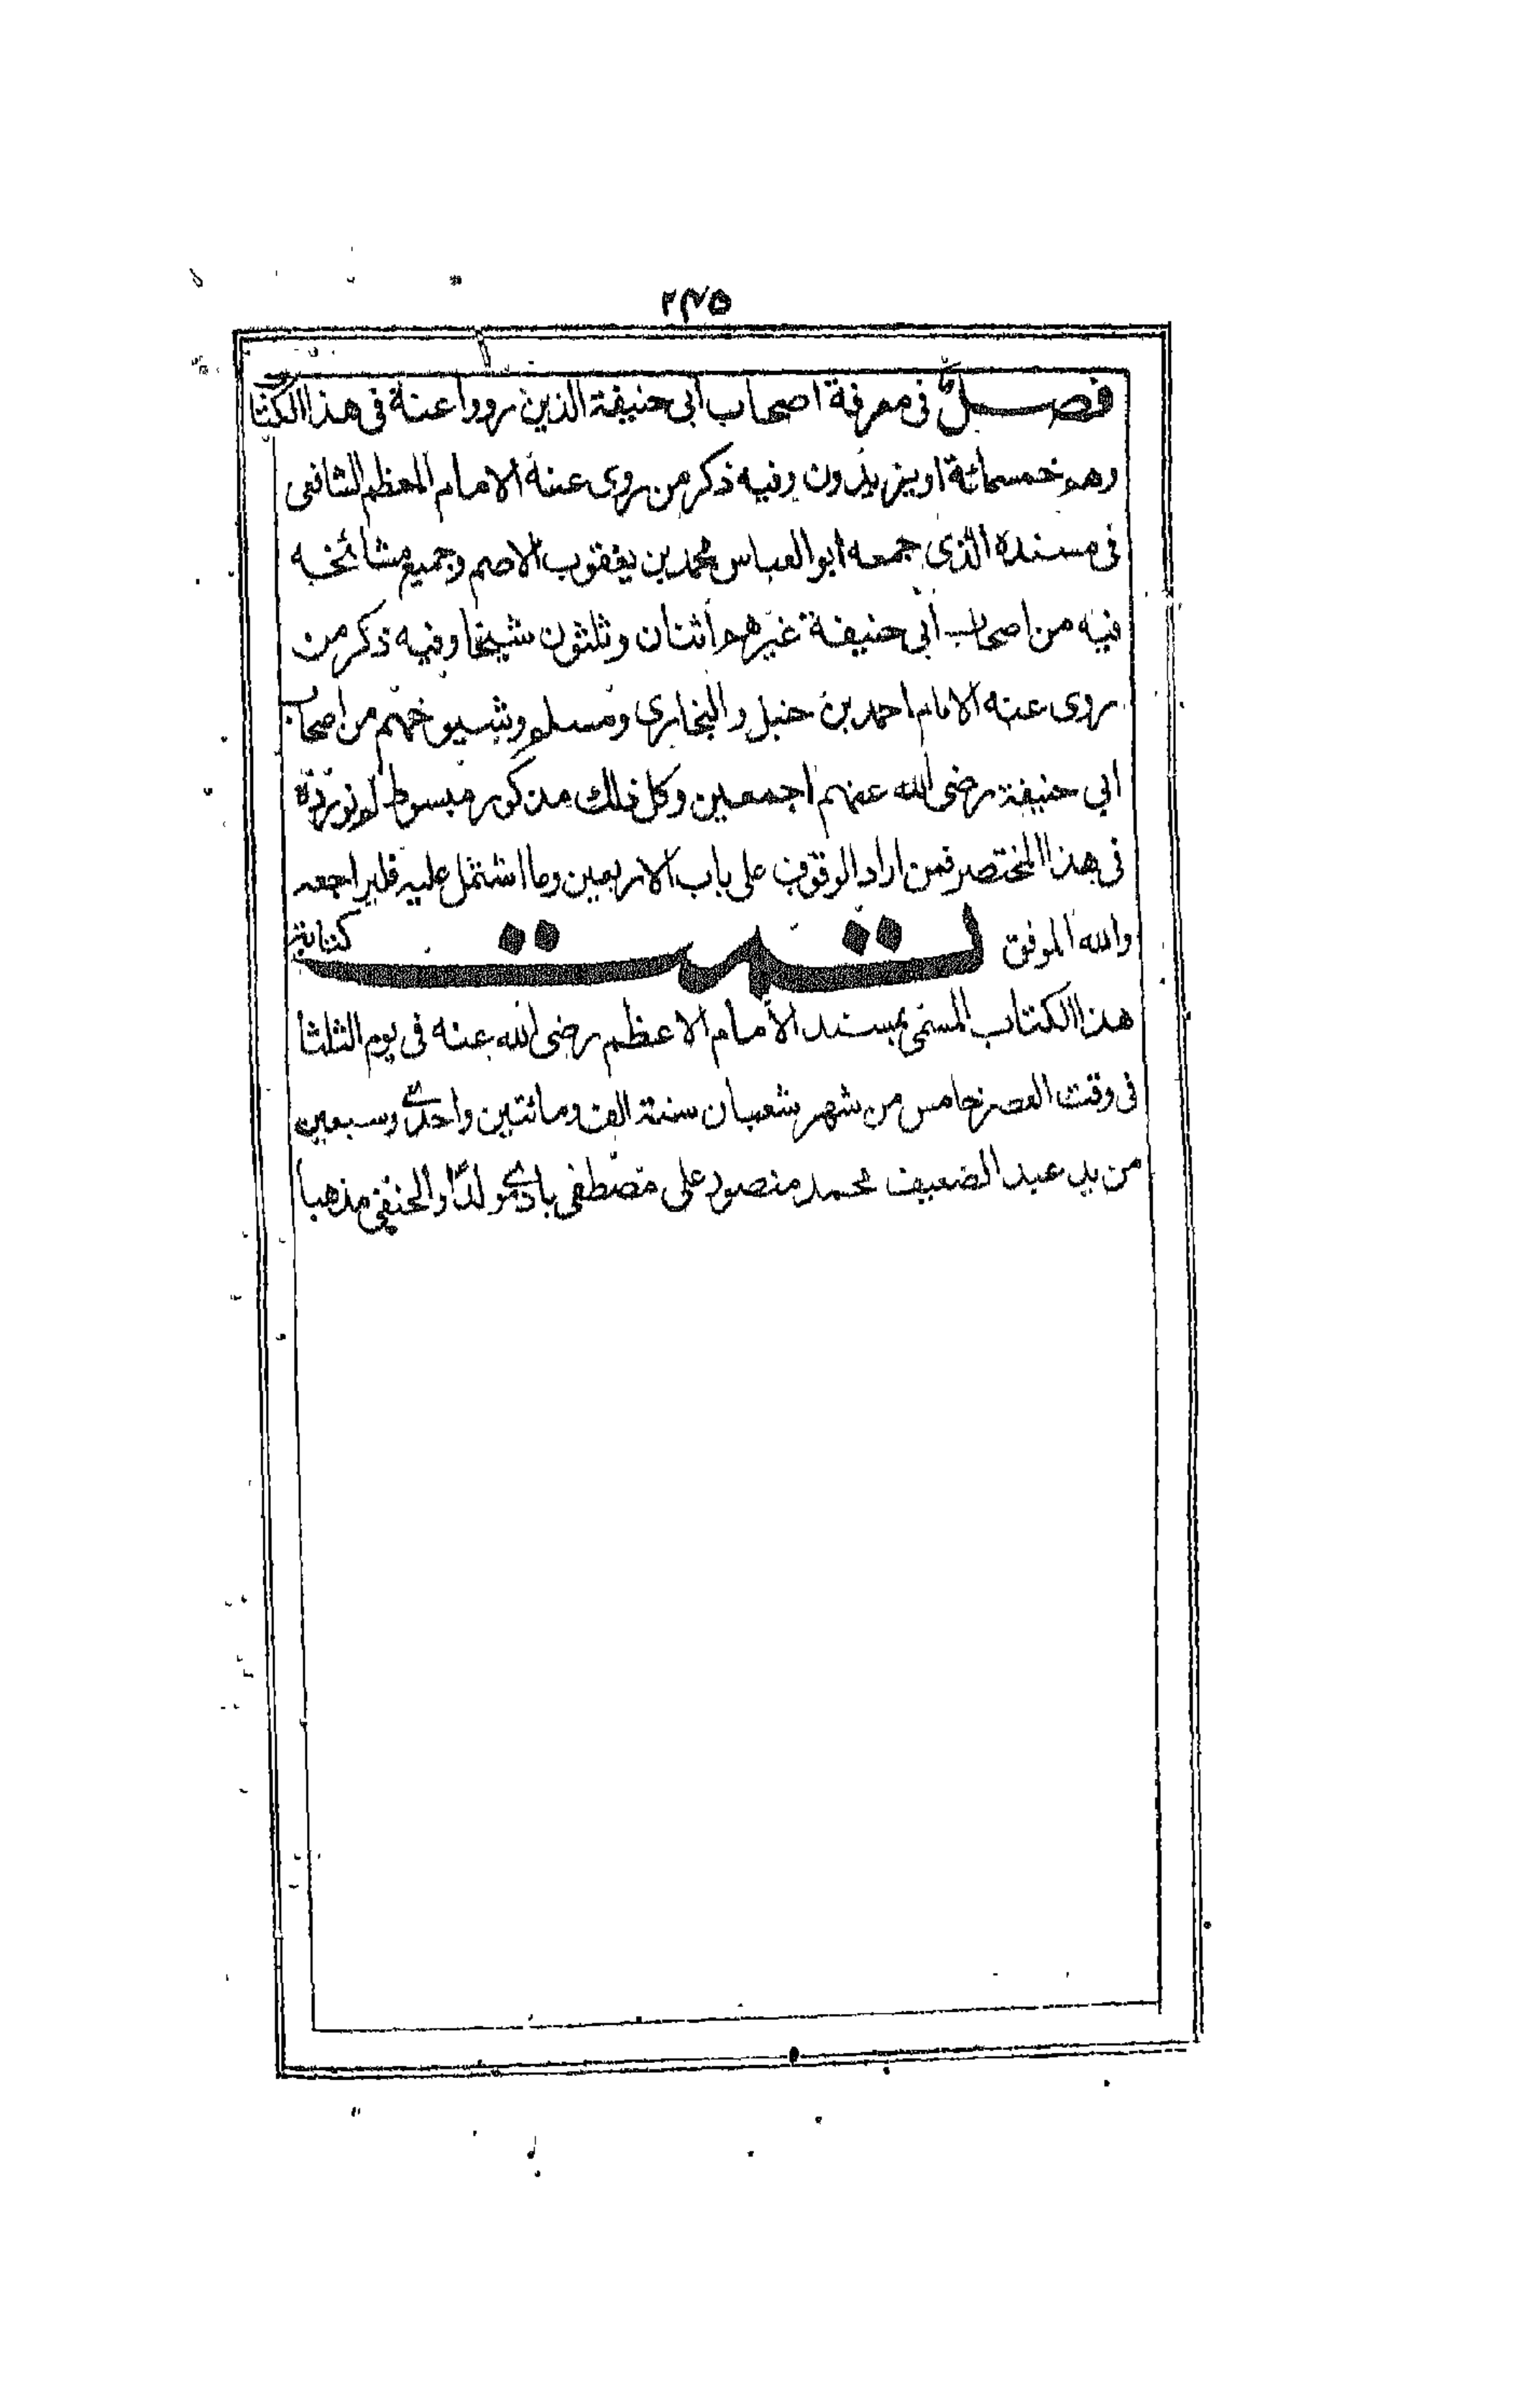 ۲۴۵
فصل فى معرفة اصحاب ابى حنيفة الذين رووا عنه فى هذا الكتا
وهم خمسمائة او يزيدون وفيه ذكر من روى عنه الامام المعظم الشافعى
فى مسنده الذى جمعه ابو العباس محمد بن يعقوب الاصم وجميع مشائخه
فيه من اصحاب ابى حنيفة غيرهم اثنان وثلثون شيخا وفيه ذكر من
روى عنه الامام احمد بن حنبل والبخارى ومسلم وشيوخهم من اصحاب
ابي حنيفة رضى الله عنهم اجمعين وكل ذلك مذكور مبسوط لم نورده
فى هذا المختصر فمن اراد الوقوف على باب الاربعين وما اشتمل عليه فليراجعه
والله الموفق تمت كتابة
هذا الكتاب المسمى بمسند الامام الاعظم رضى الله عنه فى يوم الثلثا
فى وقت العصر خامس من شهر شعبان سنة الف ومائتين واحدى وسبعين
من يد عبد الضعيف محمد منصور على مصطفى بادى مولدًا والحنفى مذهبا